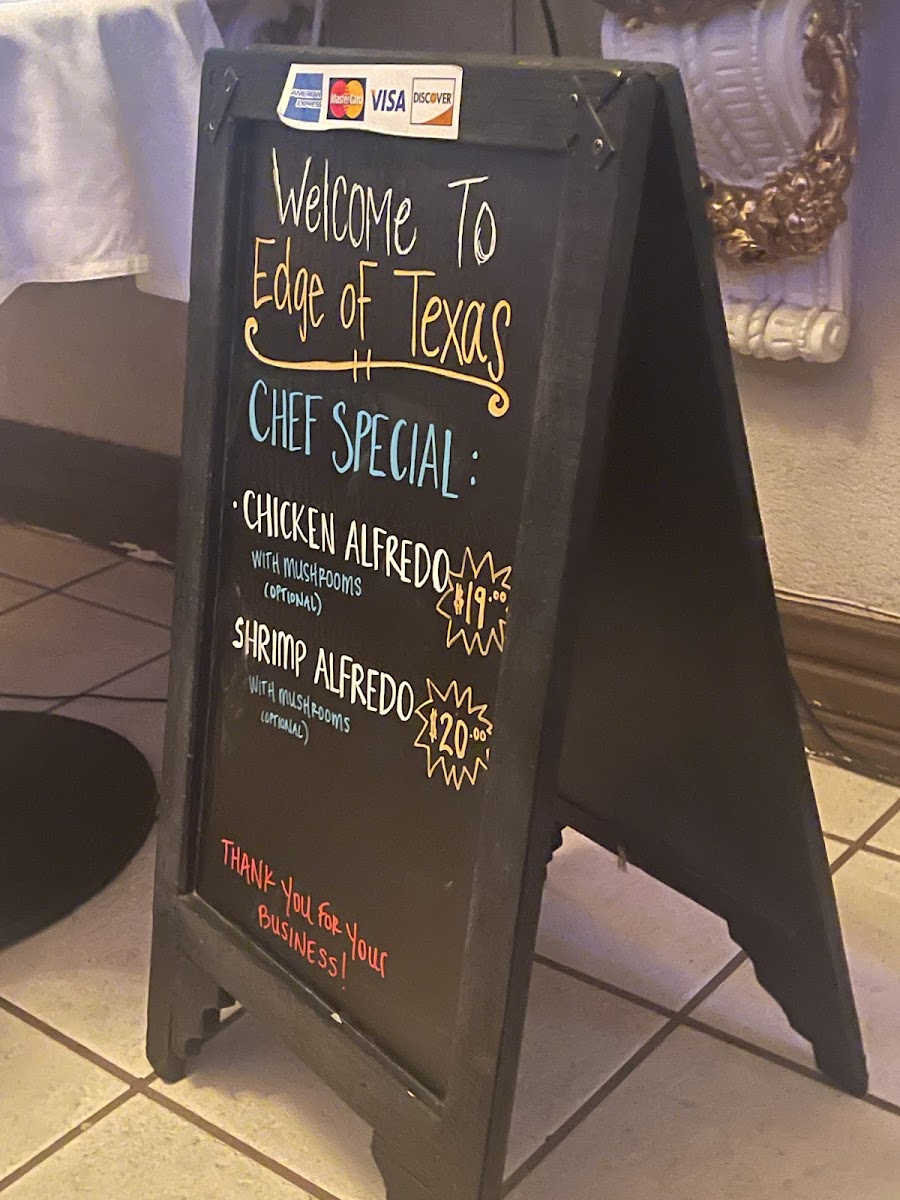 AMERICAN EXPRESS MasterCard VISA DISCOVER
Welcome To
Edge of Texas
CHEF SPECIAL:
· CHICKEN ALFREDO
WITH MUSHROOMS
(OPTIONAL)
$19.00
SHRIMP ALFREDO
WITH MUSHROOMS
(OPTIONAL)
$20.00
THANK YOU FOR YOUR
BUSINESS!